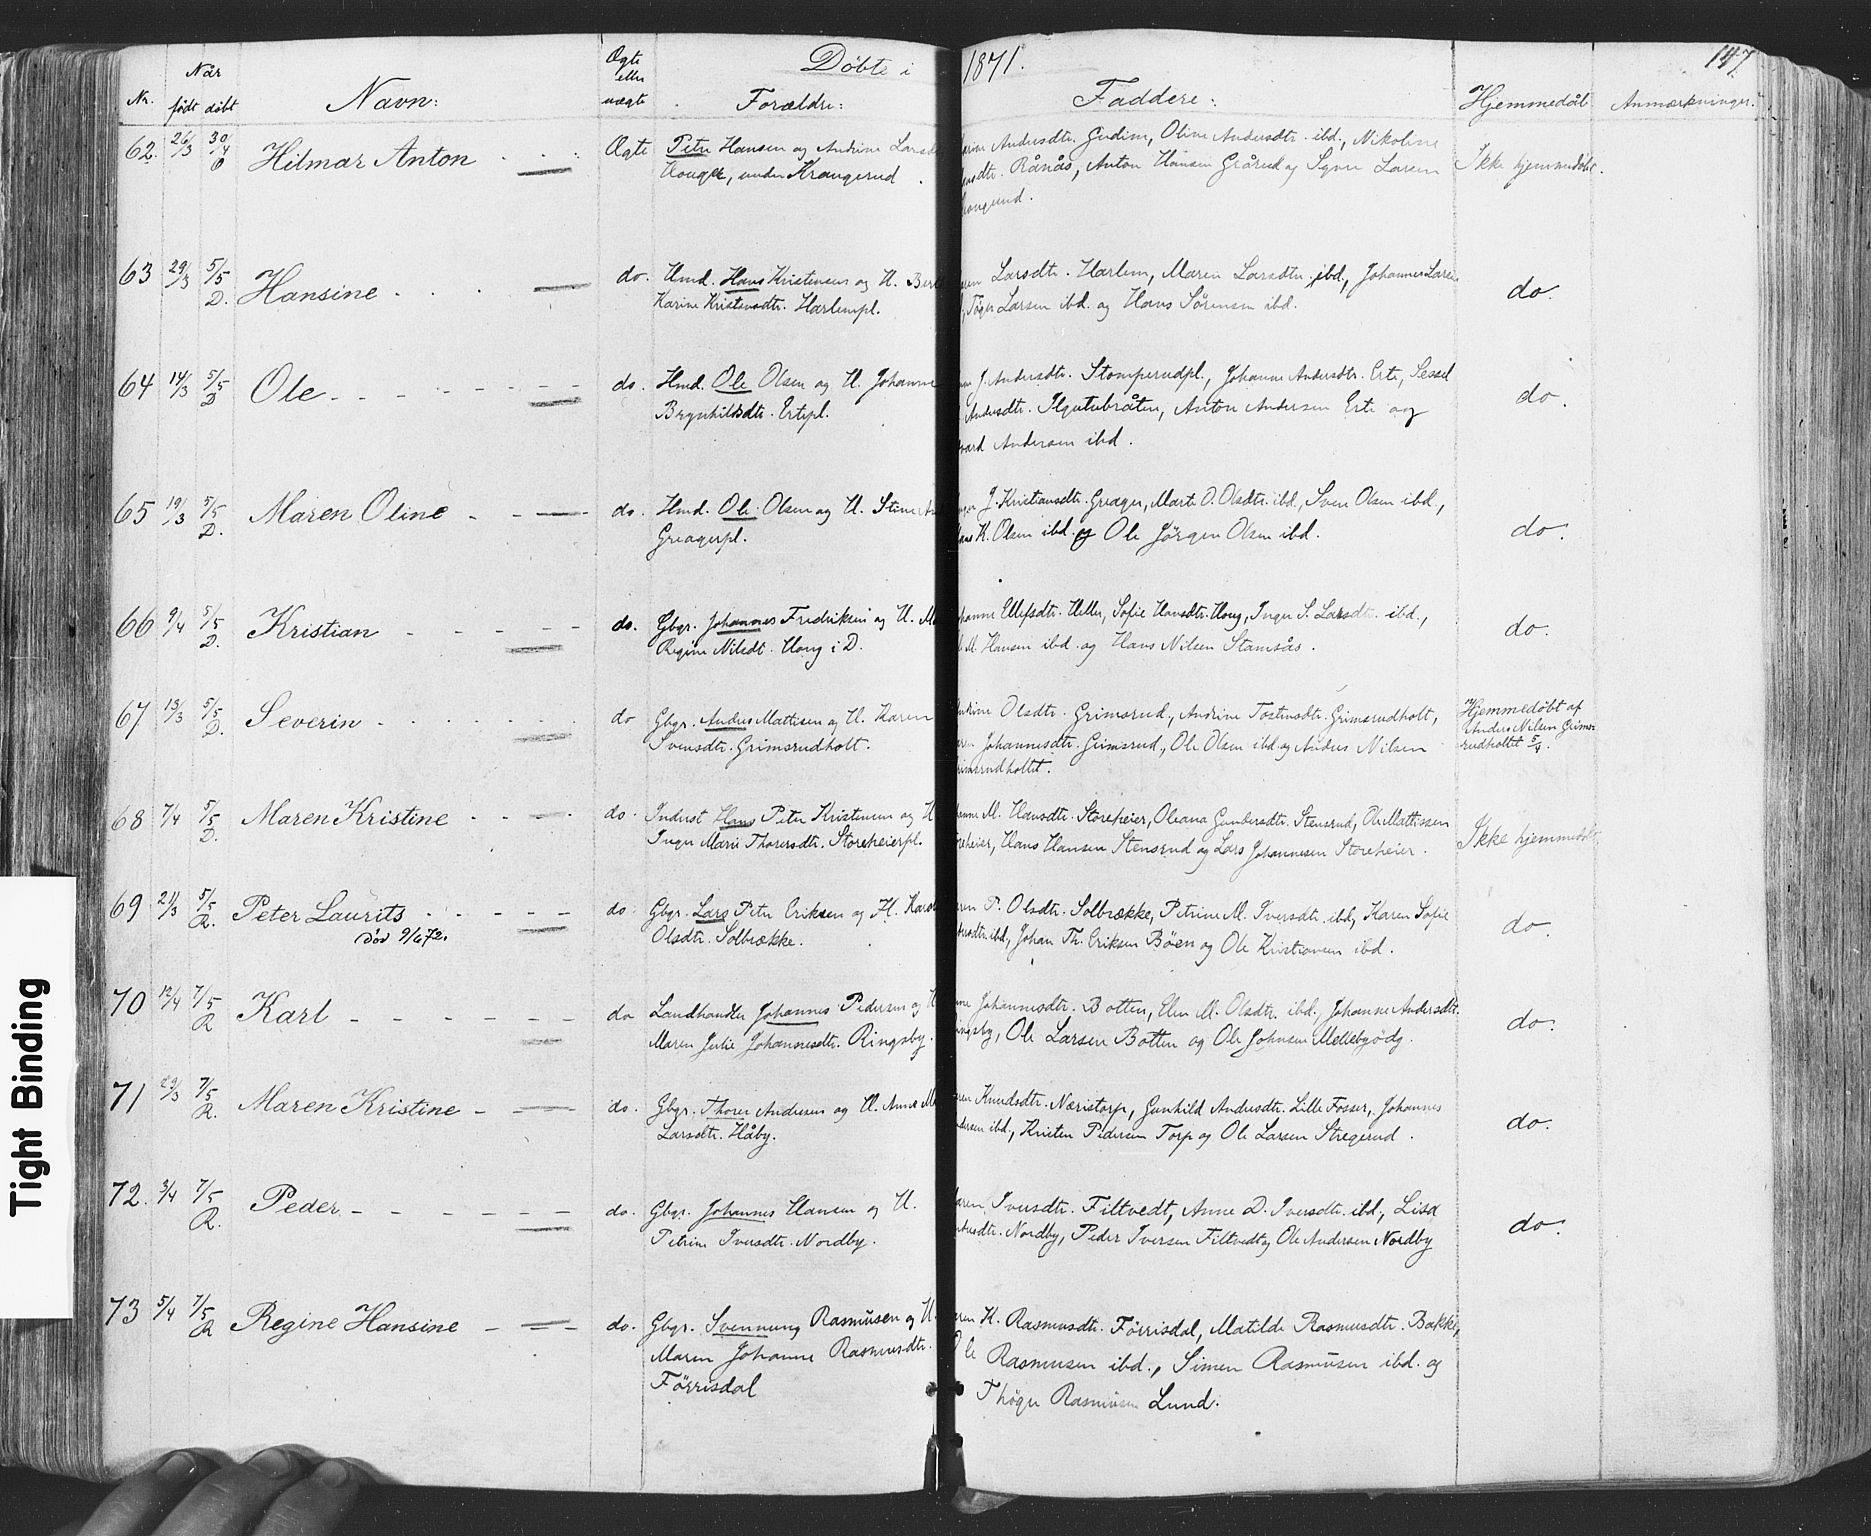 Døbte i 1871. 147.
Nr. Når født døbt Navn: Ægte eller uægte Forældre: Faddere: Hjemmedøbt Anmærkninger.
62. 26/3 30/4 Ø Hilmar Anton Ægte Peter Hansen og Andrine Larsd
Andersdtr. Gudim, Oline Andersdtr. ibd, Nikoline
Hougen, under Krangerud. Rånås, Anton Hansen Grårud og Signe Larsen Ikke hjemmedøbt.
63 29/3 5/5 D. Hansine do. Hmd. Hans Kristensen og H. Ber
Larsdtr. Harlem, Maren Larsdtr. ibd, Johannes Larsen
Karine Kristensdtr. Harlempl. Töger Larsen ibd. og Hans Sörensen ibd. do.
64 14/3 5/5 D Ole do. Hmd. Ole Olsen og H. Johanne
J. Andersdtr. Stomperudpl., Johanne Andersdtr. Erte, Sessel
Brynhildsdtr. Ertepl. Andersdtr. Anton Andersen Erte og do.
Andersen ibd.
65 19/3 5/5 D. Maren Oline do. Hmd. Ole Olsen og H. Stine
J. Kristiansdtr. Greager, Marte O. Olsdtr. ibd., Sven Olsen ibd,
Greagerpl. K. Olsen ibd. og Ole Jörgen Olsen ibd. do.
66 9/4 5/5 D. Kristian do. Gbgr. Johannes Fredriksen og H. Ma
Ellefsdtr. Heller, Sofie Hansdtr. Houg, Inger S. Larsdtr. ibd.,
Regine Nilsdt. Houg i D. M. Hansen ibd. og Hans Nilsen Stamsås. do.
67 13/3 5/5 D. Severin do Gbgr. Anders Mattisen og H. Karen
Olsdtr. Grimsrud, Andrine Tostensdtr. Grimsrudholt, Hjemmedøbt af
Svensdtr. Grimsrudholt. Johannesdtr. Grimsrud, Ole Olsen ibd og Anders Nilsen Anders Nilsen Grims-
Grimsrudholtet. rudholtet 5/4.
68 7/4 5/5 D. Maren Kristine do. Inderst Hans Peter Kristensen og H
M. Hansdtr. Storeheier, Oleana Gundersdtr. Stensrud, Ole Mattissen
Inger Marie Thoresdtr. Storeheierpl. Storeheier, Hans Hansen Stensrud og Lars Johannesen Storeheier. Ikke hjemmedøbt
69 21/3 5/5 R. Peter Laurits do. Gbgr. Lars Peter Eriksen og H. Karol
P. Olsdtr. Solbrække, Petrine M. Iversdtr. ibd, Karen Sofie
død 9/6 72. Olsdtr. Solbrække. ibd, Johan Th. Eriksen Böen og Ole Kristiansen ibd. do
70 12/4 7/5 R Karl do Landhandler Johannes Pedersen og H
Johannesdtr. Botten, Elen M. Olsdtr. ibd., Johanne Andersdtr.
Maren Julie Johannesdtr. Ringsby. Ringsby, Ole Larsen Botten og Ole Johnsen Mellebyödg. do.
71 29/3 7/5 R. Maren Kristine do. Gbgr. Thorer Andersen og H. Anne M
Knudsdtr. Næristorp, Gunhild Andersdtr. Lille Fosser, Johannes
Larsdtr. Håby. Andersen ibd, Kristen Pedersen Torp og Ole Larsen Stregerud. do.
72. 3/4 7/5 R. Peder do. Gbgr. Johannes Hansen og H.
Karen Iversdtr. Filtvedt, Anne D. Iversdtr. ibd, Lisa
Petrine Iversdtr. Nordby. Nordby, Peder Iversen Filtvedt og Ole Andersen Nordby do.
73 5/4 7/5 R Regine Hansine do. Gbgr. Svennung Rasmusen og H
K. Rasmusdtr. Förrisdal, Matilde Rasmusdtr. Bakke,
Maren Johanne Rasmusdtr. Ole Rasmusen ibd., Simen Rasmusen ibd. og
Förrisdal Thöger Rasmusen Lund.
Tight Binding